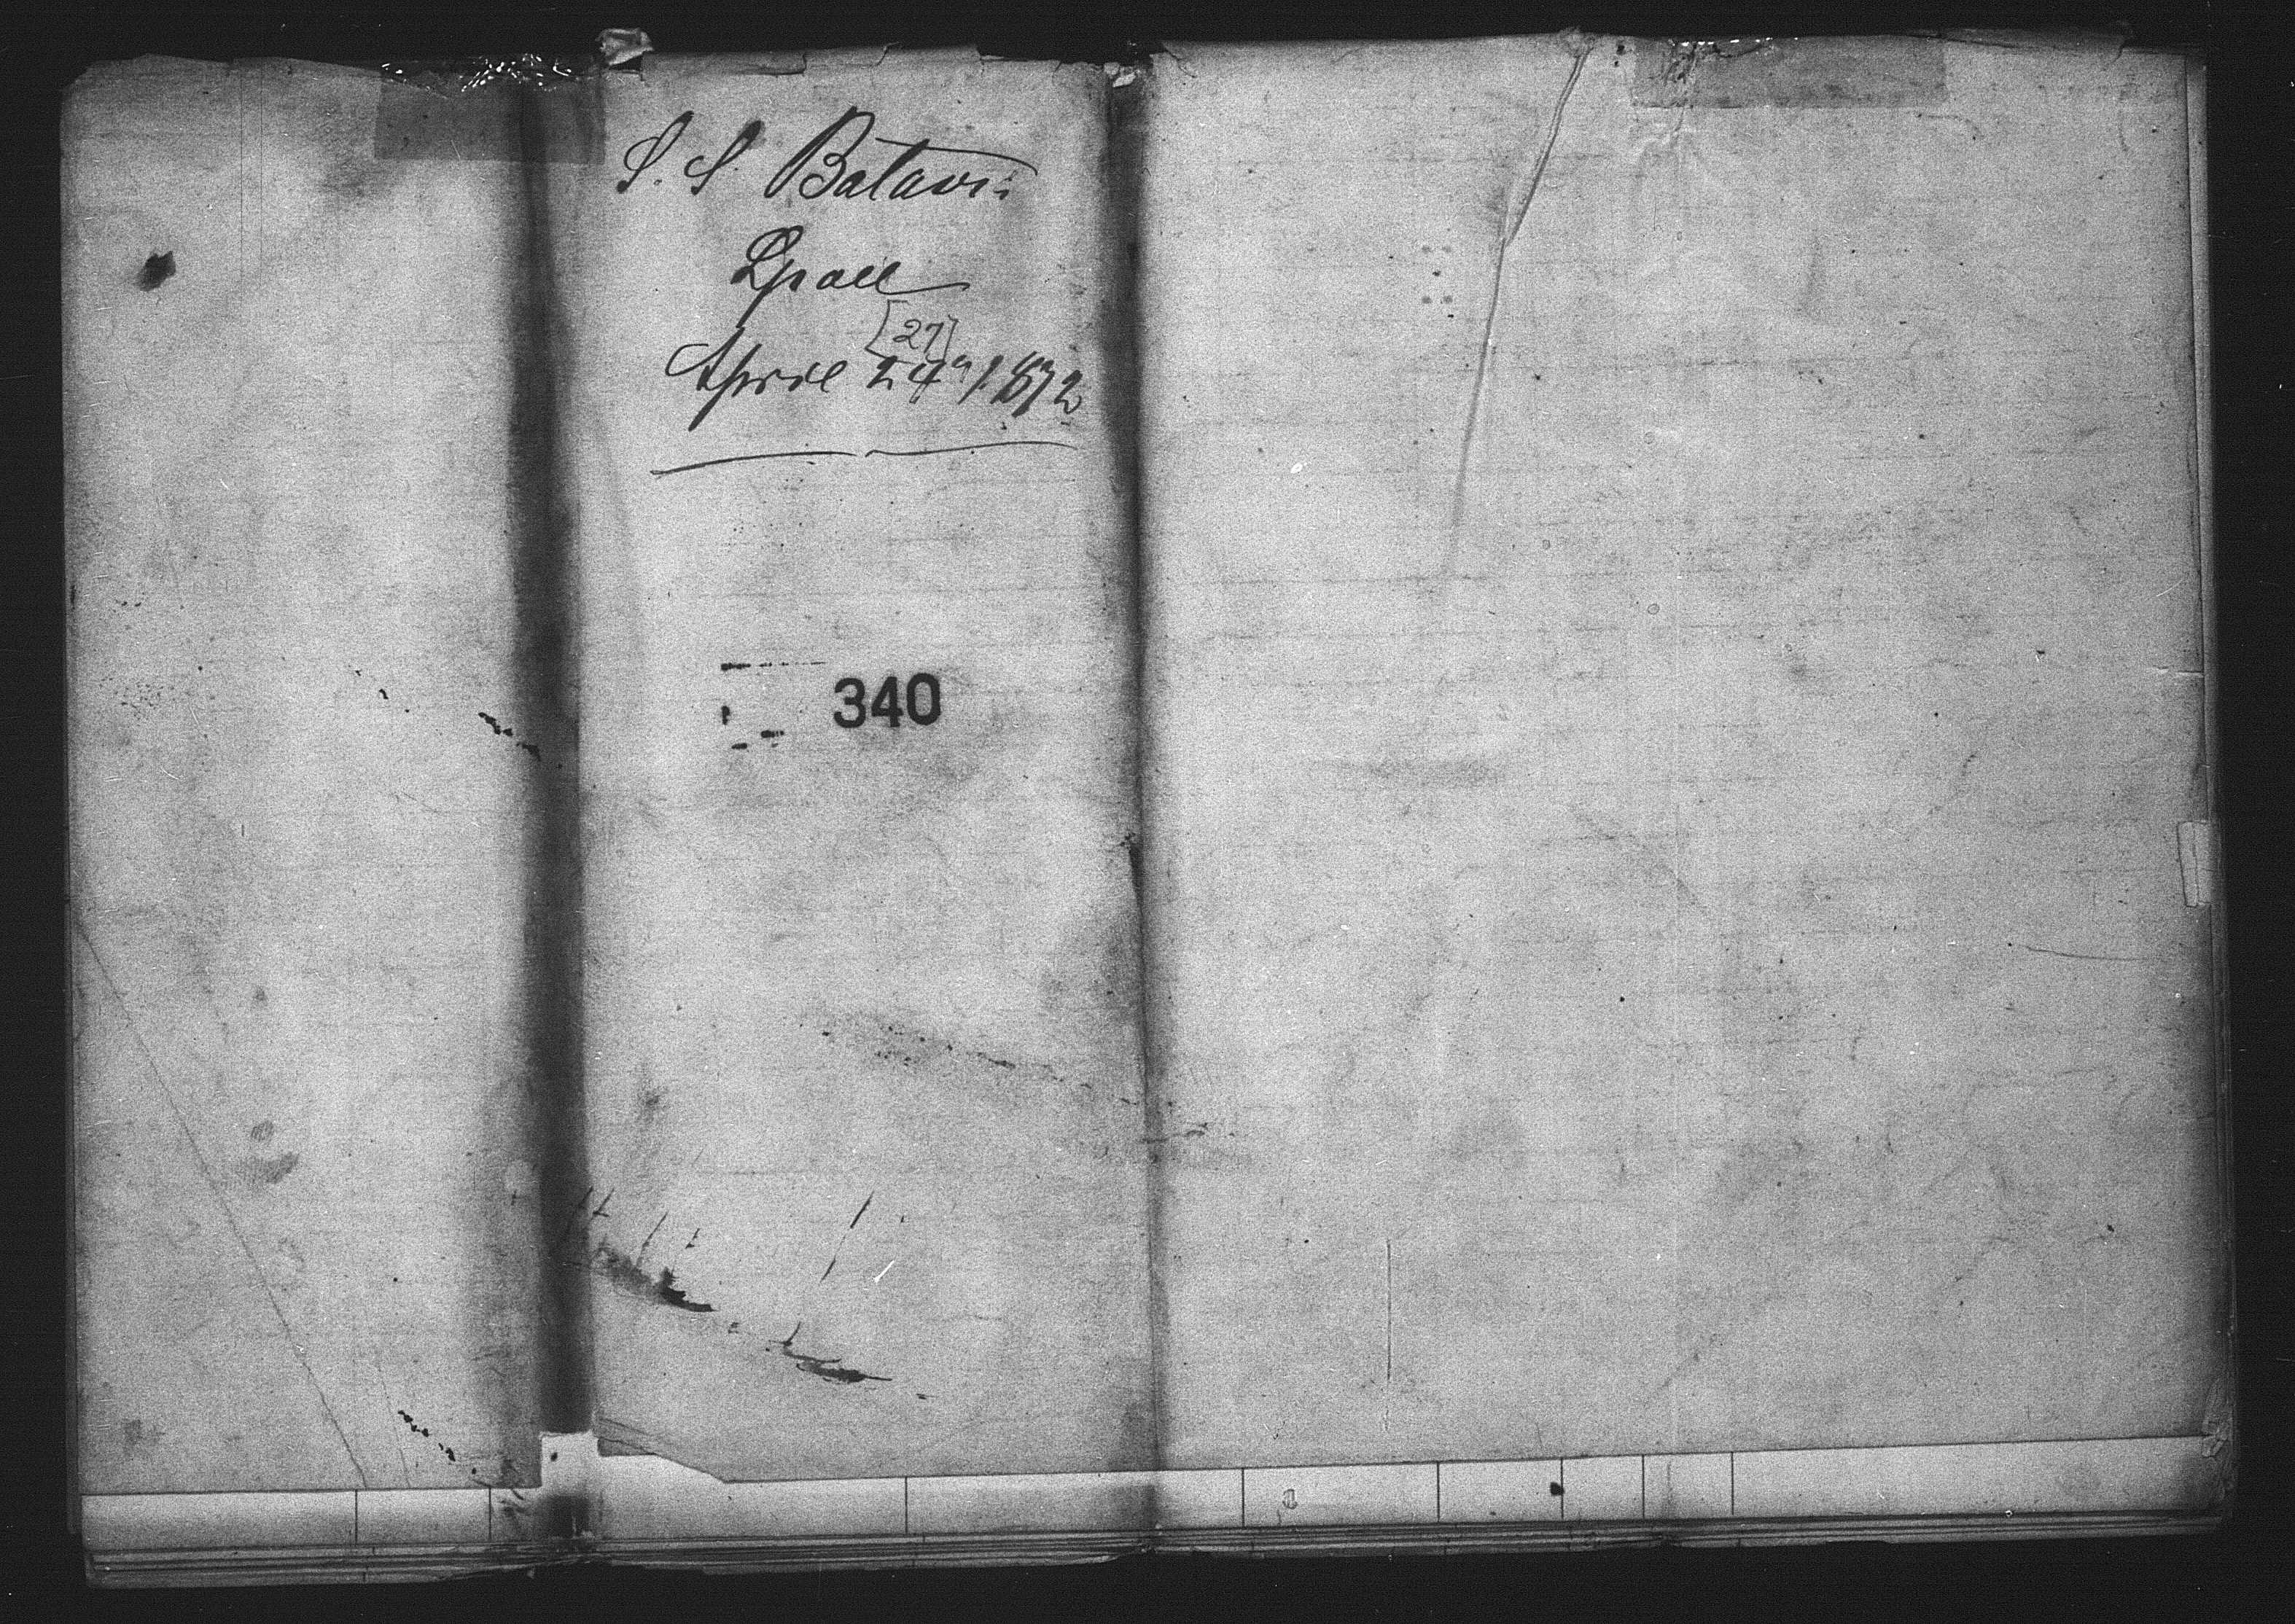 S. S. Batavia
Lpool
[27]
April 24th 1872
340